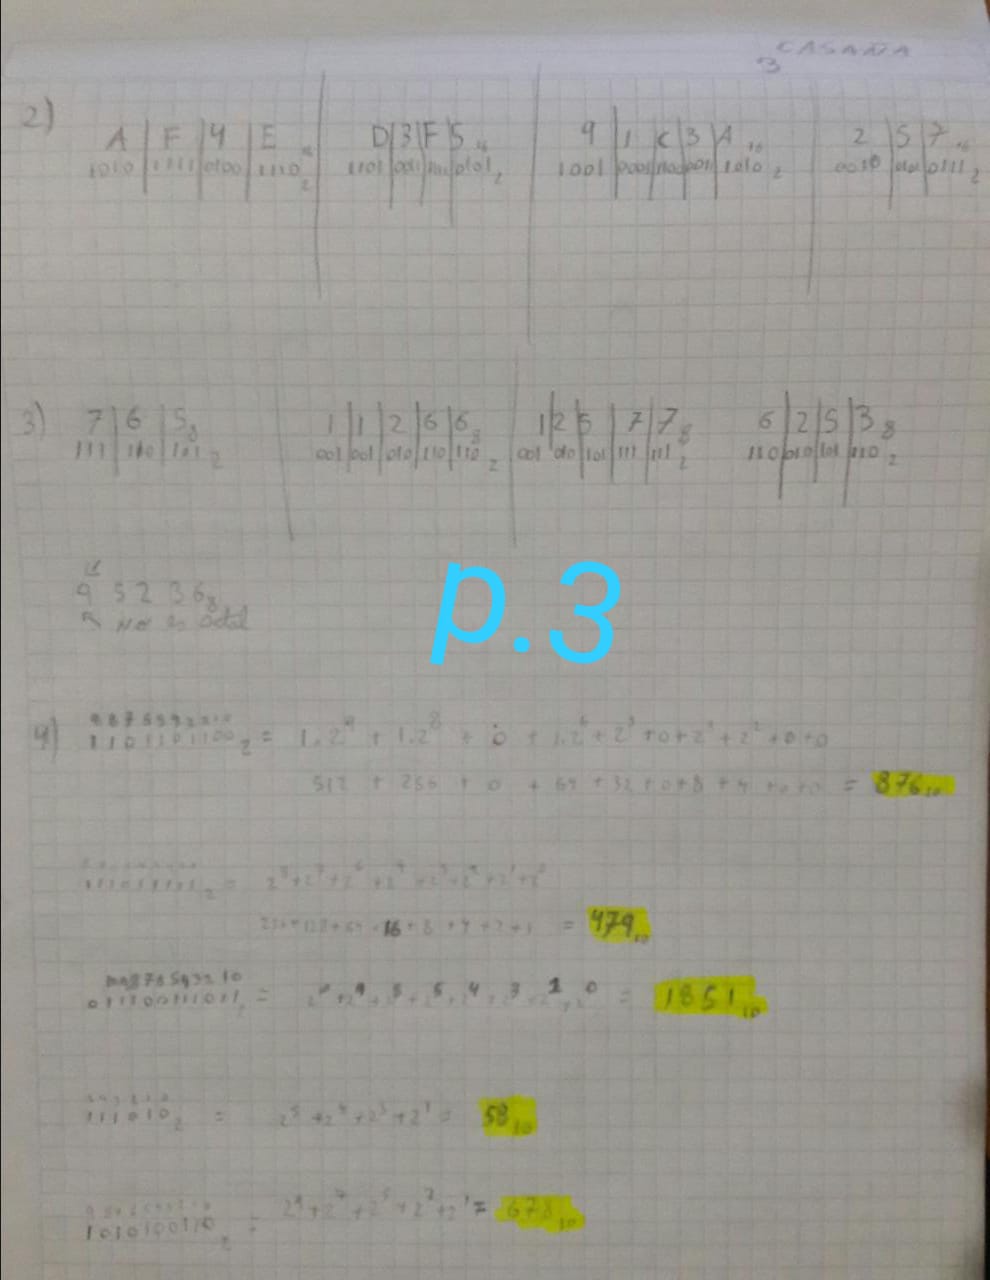 CASAÑA
3
2)
A | F | 4 | E 16
1010 | 1111 | 0100 | 1110 2
D | 3 | F | 5 16
1101 | 0011 | 1111 | 0101 2
9 | 1 | C | 3 | A 16
1001 | 0001 | 1100 | 0011 | 1010 2
2 | 5 | 7 16
0010 | 0101 | 0111 2
3)
7 | 6 | 5 8
111 | 110 | 101 2
1 | 1 | 2 | 6 | 6 8
001 | 001 | 010 | 110 | 110 2
1 | 2 | 5 | 7 | 7 8
001 | 010 | 101 | 111 | 111 2
6 | 2 | 5 | 3 8
110 | 010 | 101 | 110 2
9 5 2 3 6 8
No es octal
p.3
4)
9 8 7 6 5 4 3 2 1 0
1101101100 2 = 1.2^9 + 1.2^8 + 0 + 1.2^6 + 2^5 + 0 + 2^3 + 2^2 + 0 + 0
512 + 256 + 0 + 64 + 32 + 0 + 8 + 4 + 0 + 0 = 876 10
111011111 2 = 2^8 + 2^7 + 2^6 + 2^4 + 2^3 + 2^2 + 2^1 + 2^0
256 + 128 + 64 + 16 + 8 + 4 + 2 + 1 = 479 10
011100111011 2 = = 1851 10
111010 2 = 2^5 + 2^4 + 2^3 + 2^1 = 58 10
9 8 7 6 5 4 3 2 1 0
1010100110 2 = 2^9 + 2^7 + 2^5 + 2^2 + 2^1 = 678 10